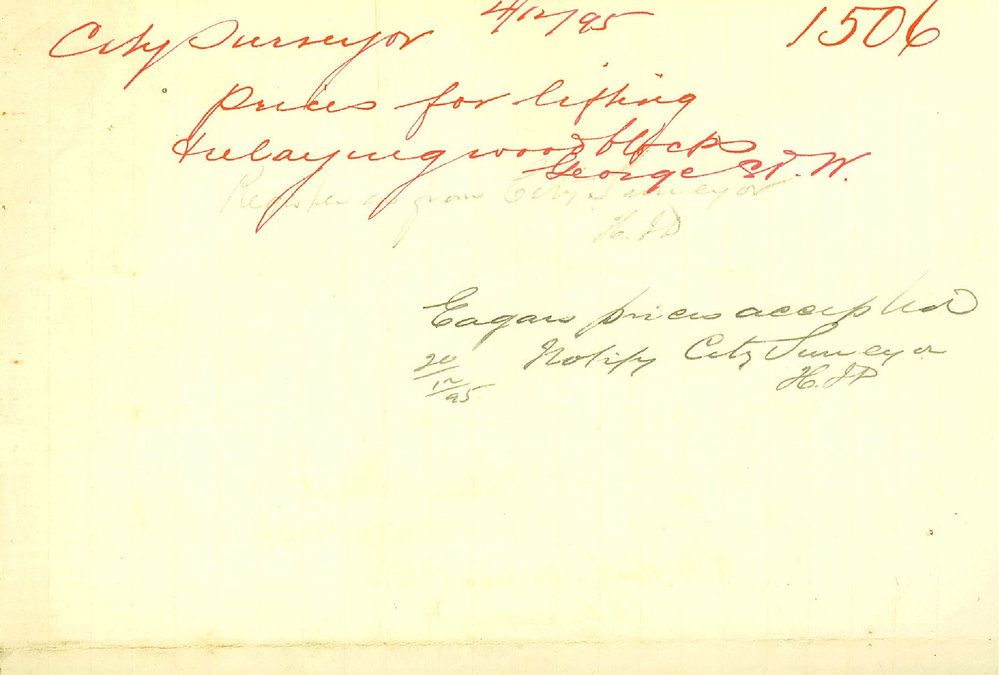 City Surveyor 4/12/95 1506
Prices for lifting
& relaying wood blocks
George St. W.
Register as from City Surveyor
H.JD
Eagars prices accepted
Notify City Surveyor
20/12/95 H.JD